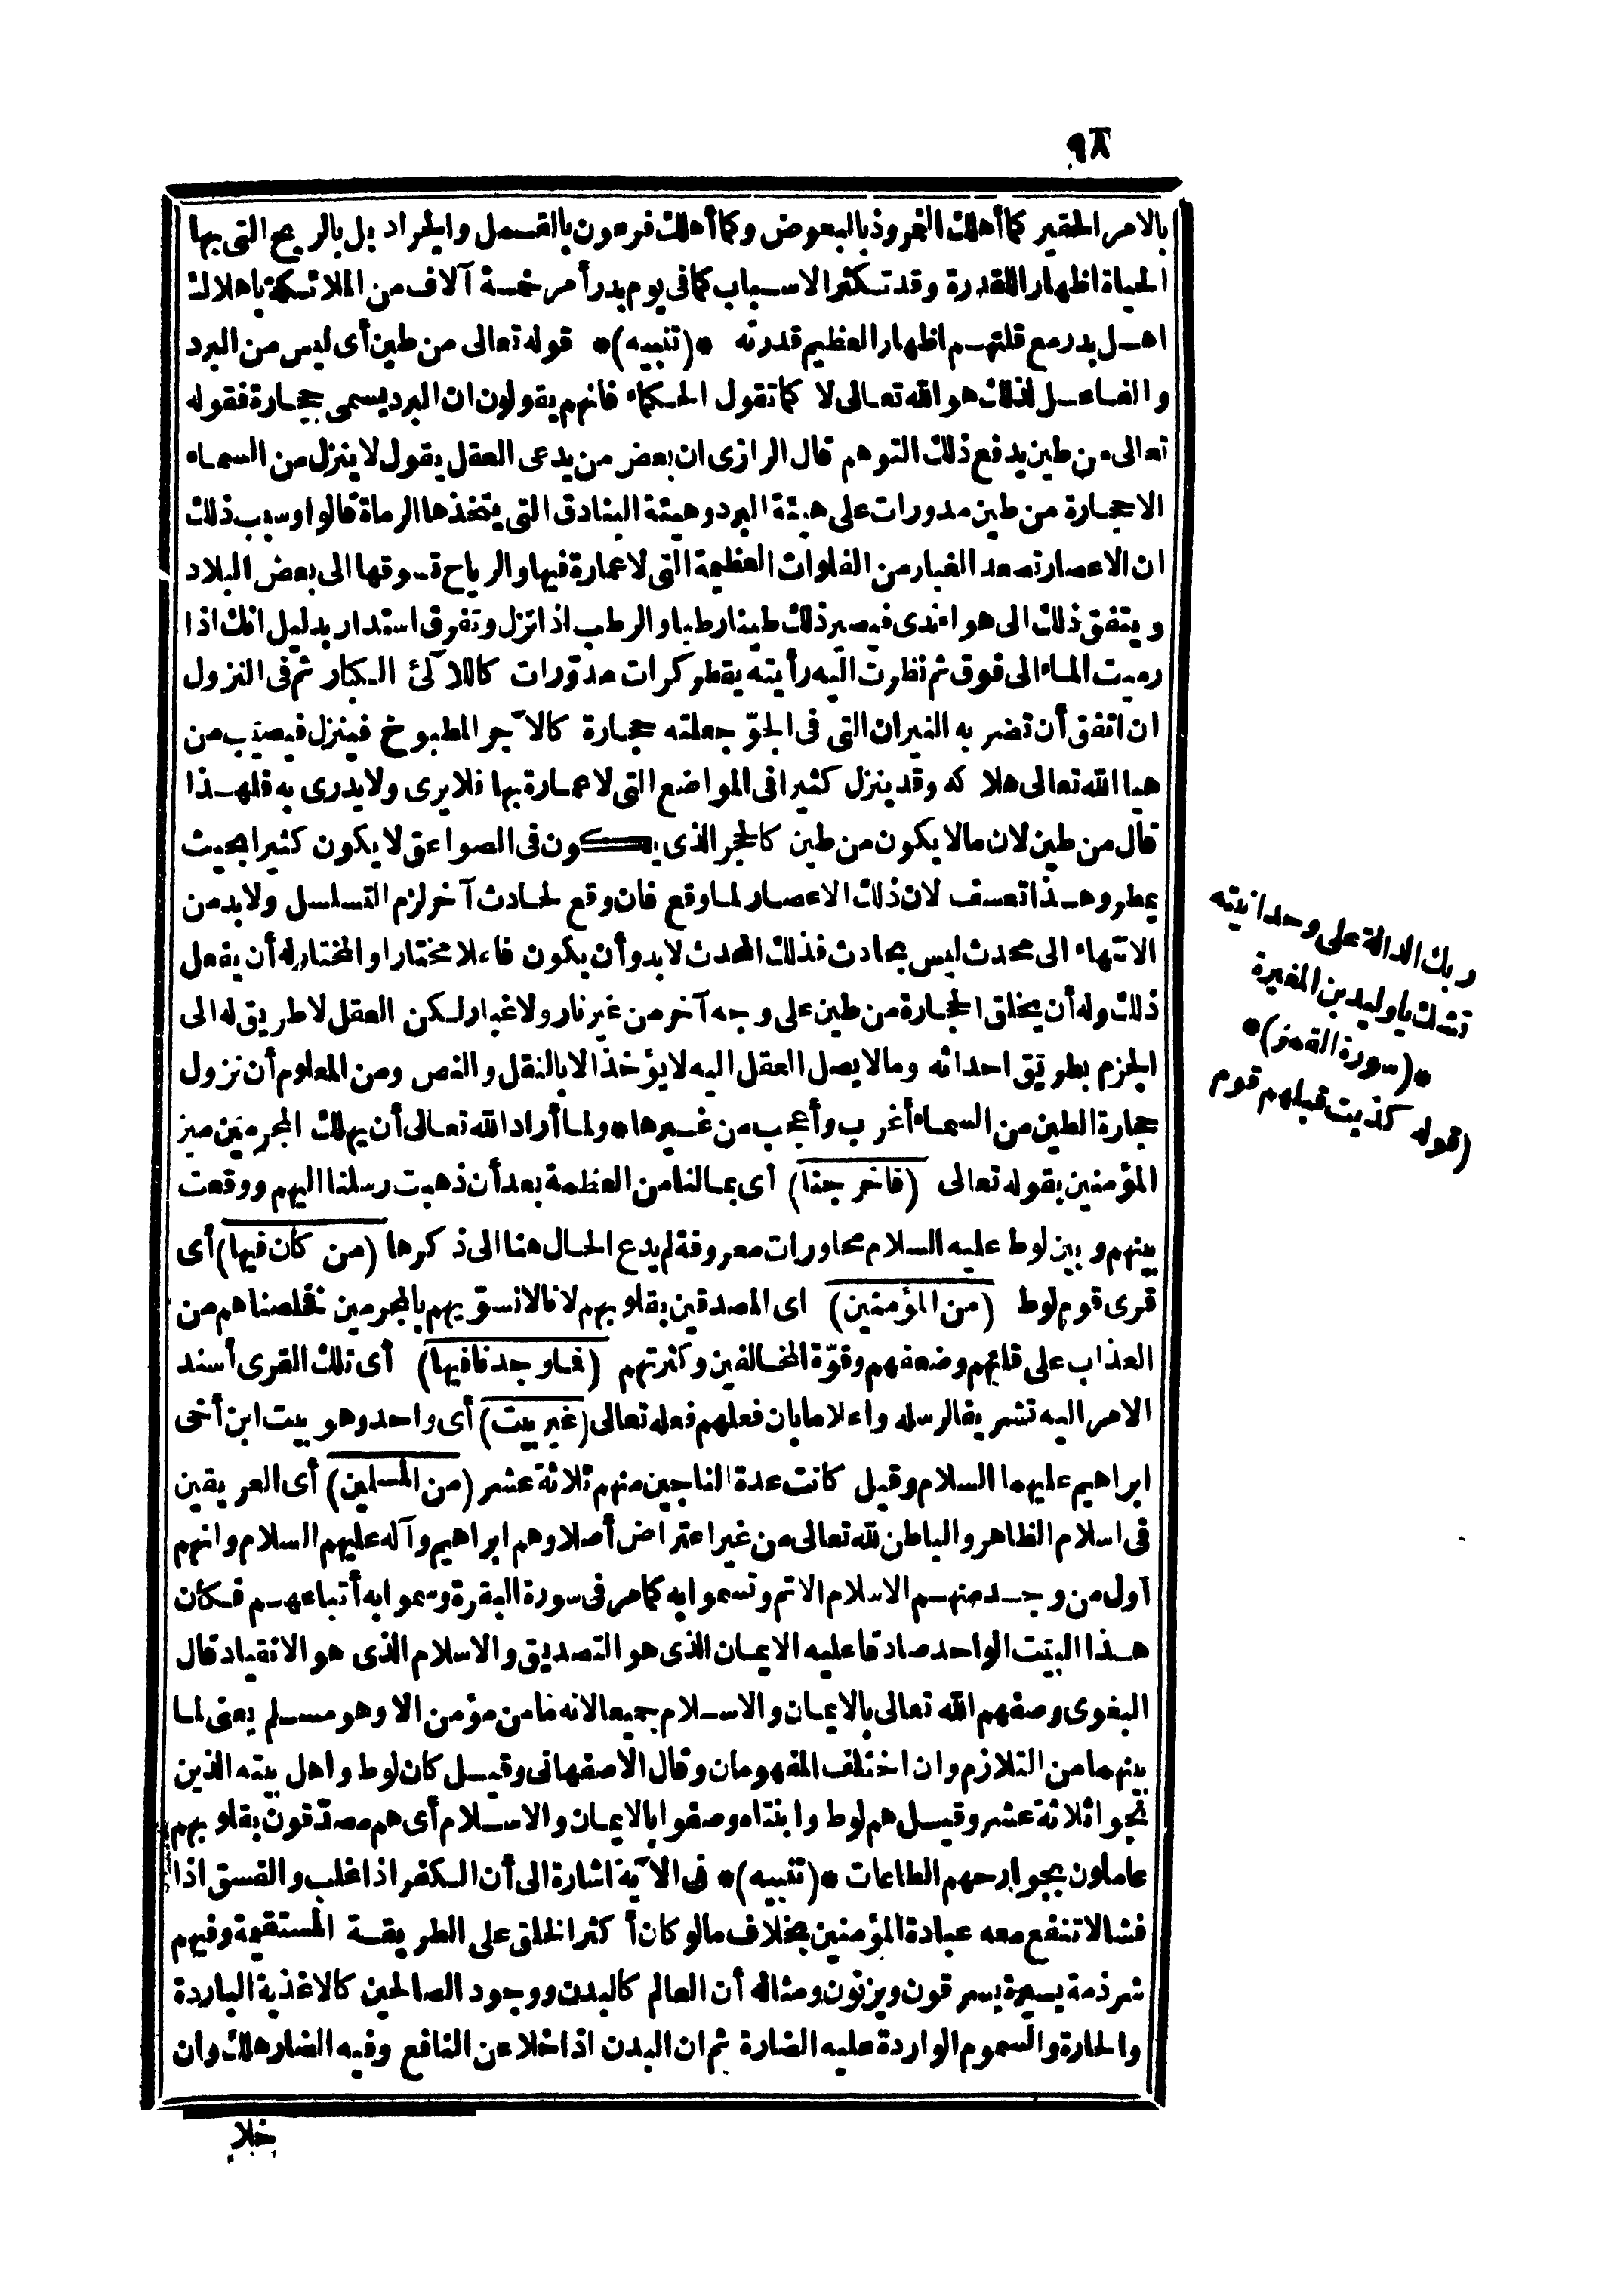 ٩٨
بالامر الحقير كما أهلك النمروذ بالبعوض وكما أهلك فرعون بالقسمل والجراد بل بالريح التى بها
الحياة اظهار اللقدرة وقد تكثر الاسباب كما فى يوم بدر أمر خمسة آلاف من الملائكة باهلاك
اهل بدر مع قلتهم اظهار العظيم قدرته *(تنبيه)* قوله تعالى من طين أى ليس من البرد
والفاعل لذلك هو الله تعالى لا كما تقول الحكماء فانهم يقولون ان البرد يسمى حجارة فقوله
تعالى من طين يدفع ذلك التوهم قال الرازى ان بعض من يدعى العقل يقول لا ينزل من السماء
الاحجارة من طين مدورات على هيئة البرد وهيئة البنادق التى يتخذها الرماة قالوا وسبب ذلك
ان الاعصار تصعد الغبار من الفلوات العظيمة التى لا عمارة فيها والرياح تسوقها الى بعض البلاد
ويتفق ذلك الى هواء ندى فيصير ذلك طينا رطبا والرطب اذا نزل وتفرق استدار بدليل انك اذا
رميت الماء الى فوق ثم نظرت اليه رأيته يقطر كرات مدوّرات كاللآلئ الكبار ثم فى النزول
ان اتفق أن تضربه النيران التى فى الجوّ جعلته حجارة كالآجر المطبوخ فينزل فيصيب من
هيأ الله تعالى هلاكه وقد ينزل كثيرا فى المواضع التى لا عمارة بها فلا يرى ولا يدرى به فلهذا
قال من طين لان مالا يكون من طين كالحجر الذى يكون فى الصواعق لا يكون كثيرا بحيث
يمطر وهذا تعسف لان ذلك الاعصار لما وقع فان وقع لحادث آخر لزم التسلسل ولا بد من
الانتهاء الى محدث ليس بحادث فذلك المحدث لا بد وأن يكون فاعلا مختارا والمختار له أن يفعل
ذلك وله أن يخلق الحجارة من طين على وجه آخر من غير نار ولا غبار لكن العقل لا طريق له الى
الجزم بطريق احداثه وما لا يصل العقل اليه لا يؤخذ الا بالنقل والنص ومن المعلوم أن نزول
حجارة الطين من السماء أغرب وأعجب من غيرها * ولما أراد الله تعالى أن يهلك المجرمين ميز
المؤمنين بقوله تعالى (فاخرجنا) أى بمالنا من العظمة بعد أن ذهبت رسلنا اليهم ووقعت
بينهم وبين لوط عليه السلام محاورات معروفة لم يدع الحال هنا الى ذكرها (من كان فيها) أى
قرى قوم لوط (من المؤمنين) اى المصدقين بقلوبهم لانا لا نسوّيهم بالمجرمين فخلصناهم من
العذاب على قلتهم وضعفهم وقوّة المخالفين وكثرتهم (فما وجدنا فيها) أى تلك القرى أسند
الامر اليه تشريفا لرسله واعلاما بان فعلهم فعله تعالى (غير بيت) أى واحد وهو بيت ابن أخى
ابراهيم عليهما السلام وقيل كانت عدة الناجين منهم ثلاثة عشر (من المسلمين) أى العريقين
فى اسلام الظاهر والباطن لله تعالى من غير اعتراض أصلا وهم ابراهيم وآله عليهم السلام وانهم
أول من وجد منهم الاسلام الاتم وتسموا به كما مر فى سورة البقرة وسموا به أتباعهم فكان
هذا البيت الواحد صادقا عليه الايمان الذى هو التصديق والاسلام الذى هو الانقياد قال
البغوى وصفهم الله تعالى بالايمان والاسلام جميعا لانه مامن مؤمن الا وهو مسلم يعنى لما
بينهما من التلازم وان اختلف المفهومان وقال الاصفهانى وقيل كان لوط واهل بيته الذين
نجوا ثلاثة عشر وقيل هم لوط وابنتاه وصفوا بالايمان والاسلام أى هم مصدّقون بقلوبهم
عاملون بجوارحهم الطاعات *(تنبيه)* فى الآية اشارة الى أن الكفر اذا غلب والفسق اذا
فشا لا تنفع معه عبادة المؤمنين بخلاف مالو كان أكثر الخلق على الطريقة المستقيمة وفيهم
شرذمة يسيرة يسرقون ويزنون ومثاله أن العالم كالبدن ووجود الصالحين كالاغذية الباردة
والحارة والسموم الواردة عليه الضارة ثم ان البدن اذا خلا عن النافع وفيه الضار هلك وان
خلا
ربك الدالة على وحدانيته
تشك يا وليد بن المغيرة
*(سورة القمر)*
(قوله كذبت قبلهم قوم